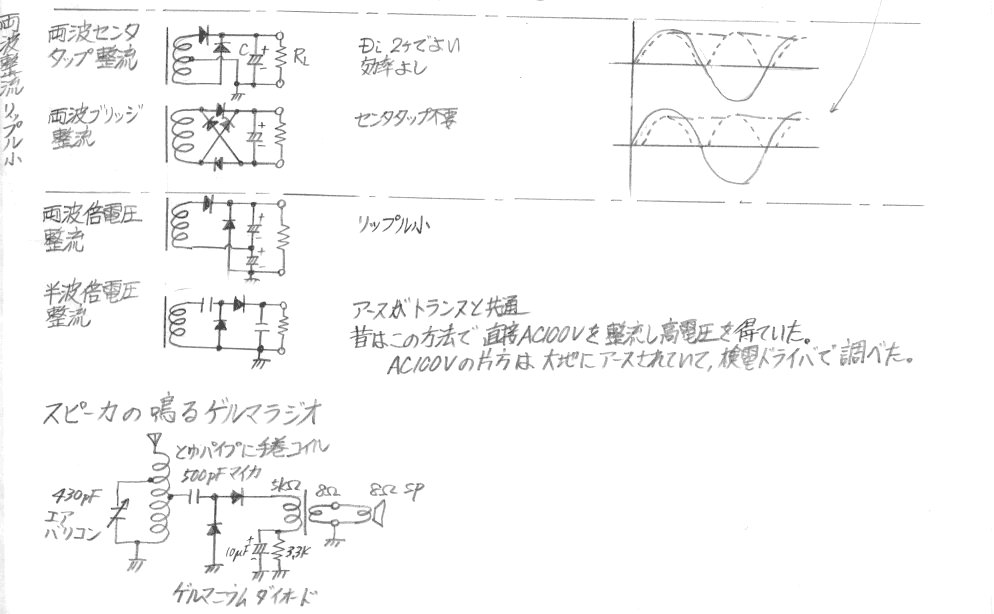 両波整流リップル小
両波センタ
タップ整流
C
+
RL
Di 2ケでよい
効率よし
両波ブリッジ
整流
+
センタタップ不要
両波倍電圧
整流
+
-
+
-
リップル小
半波倍電圧
整流
アースがトランスと共通
昔はこの方法で直接AC100Vを整流し高電圧を得ていた。
AC100Vの片方は大地にアースされていて,検電ドライバで調べた。
スピーカの鳴るゲルマラジオ
とゆパイプに手巻コイル
500pFマイカ
430pF
エア
バリコン
5kΩ
8Ω
8Ω SP
10μF
+
-
3.3K
ゲルマニウムダイオード